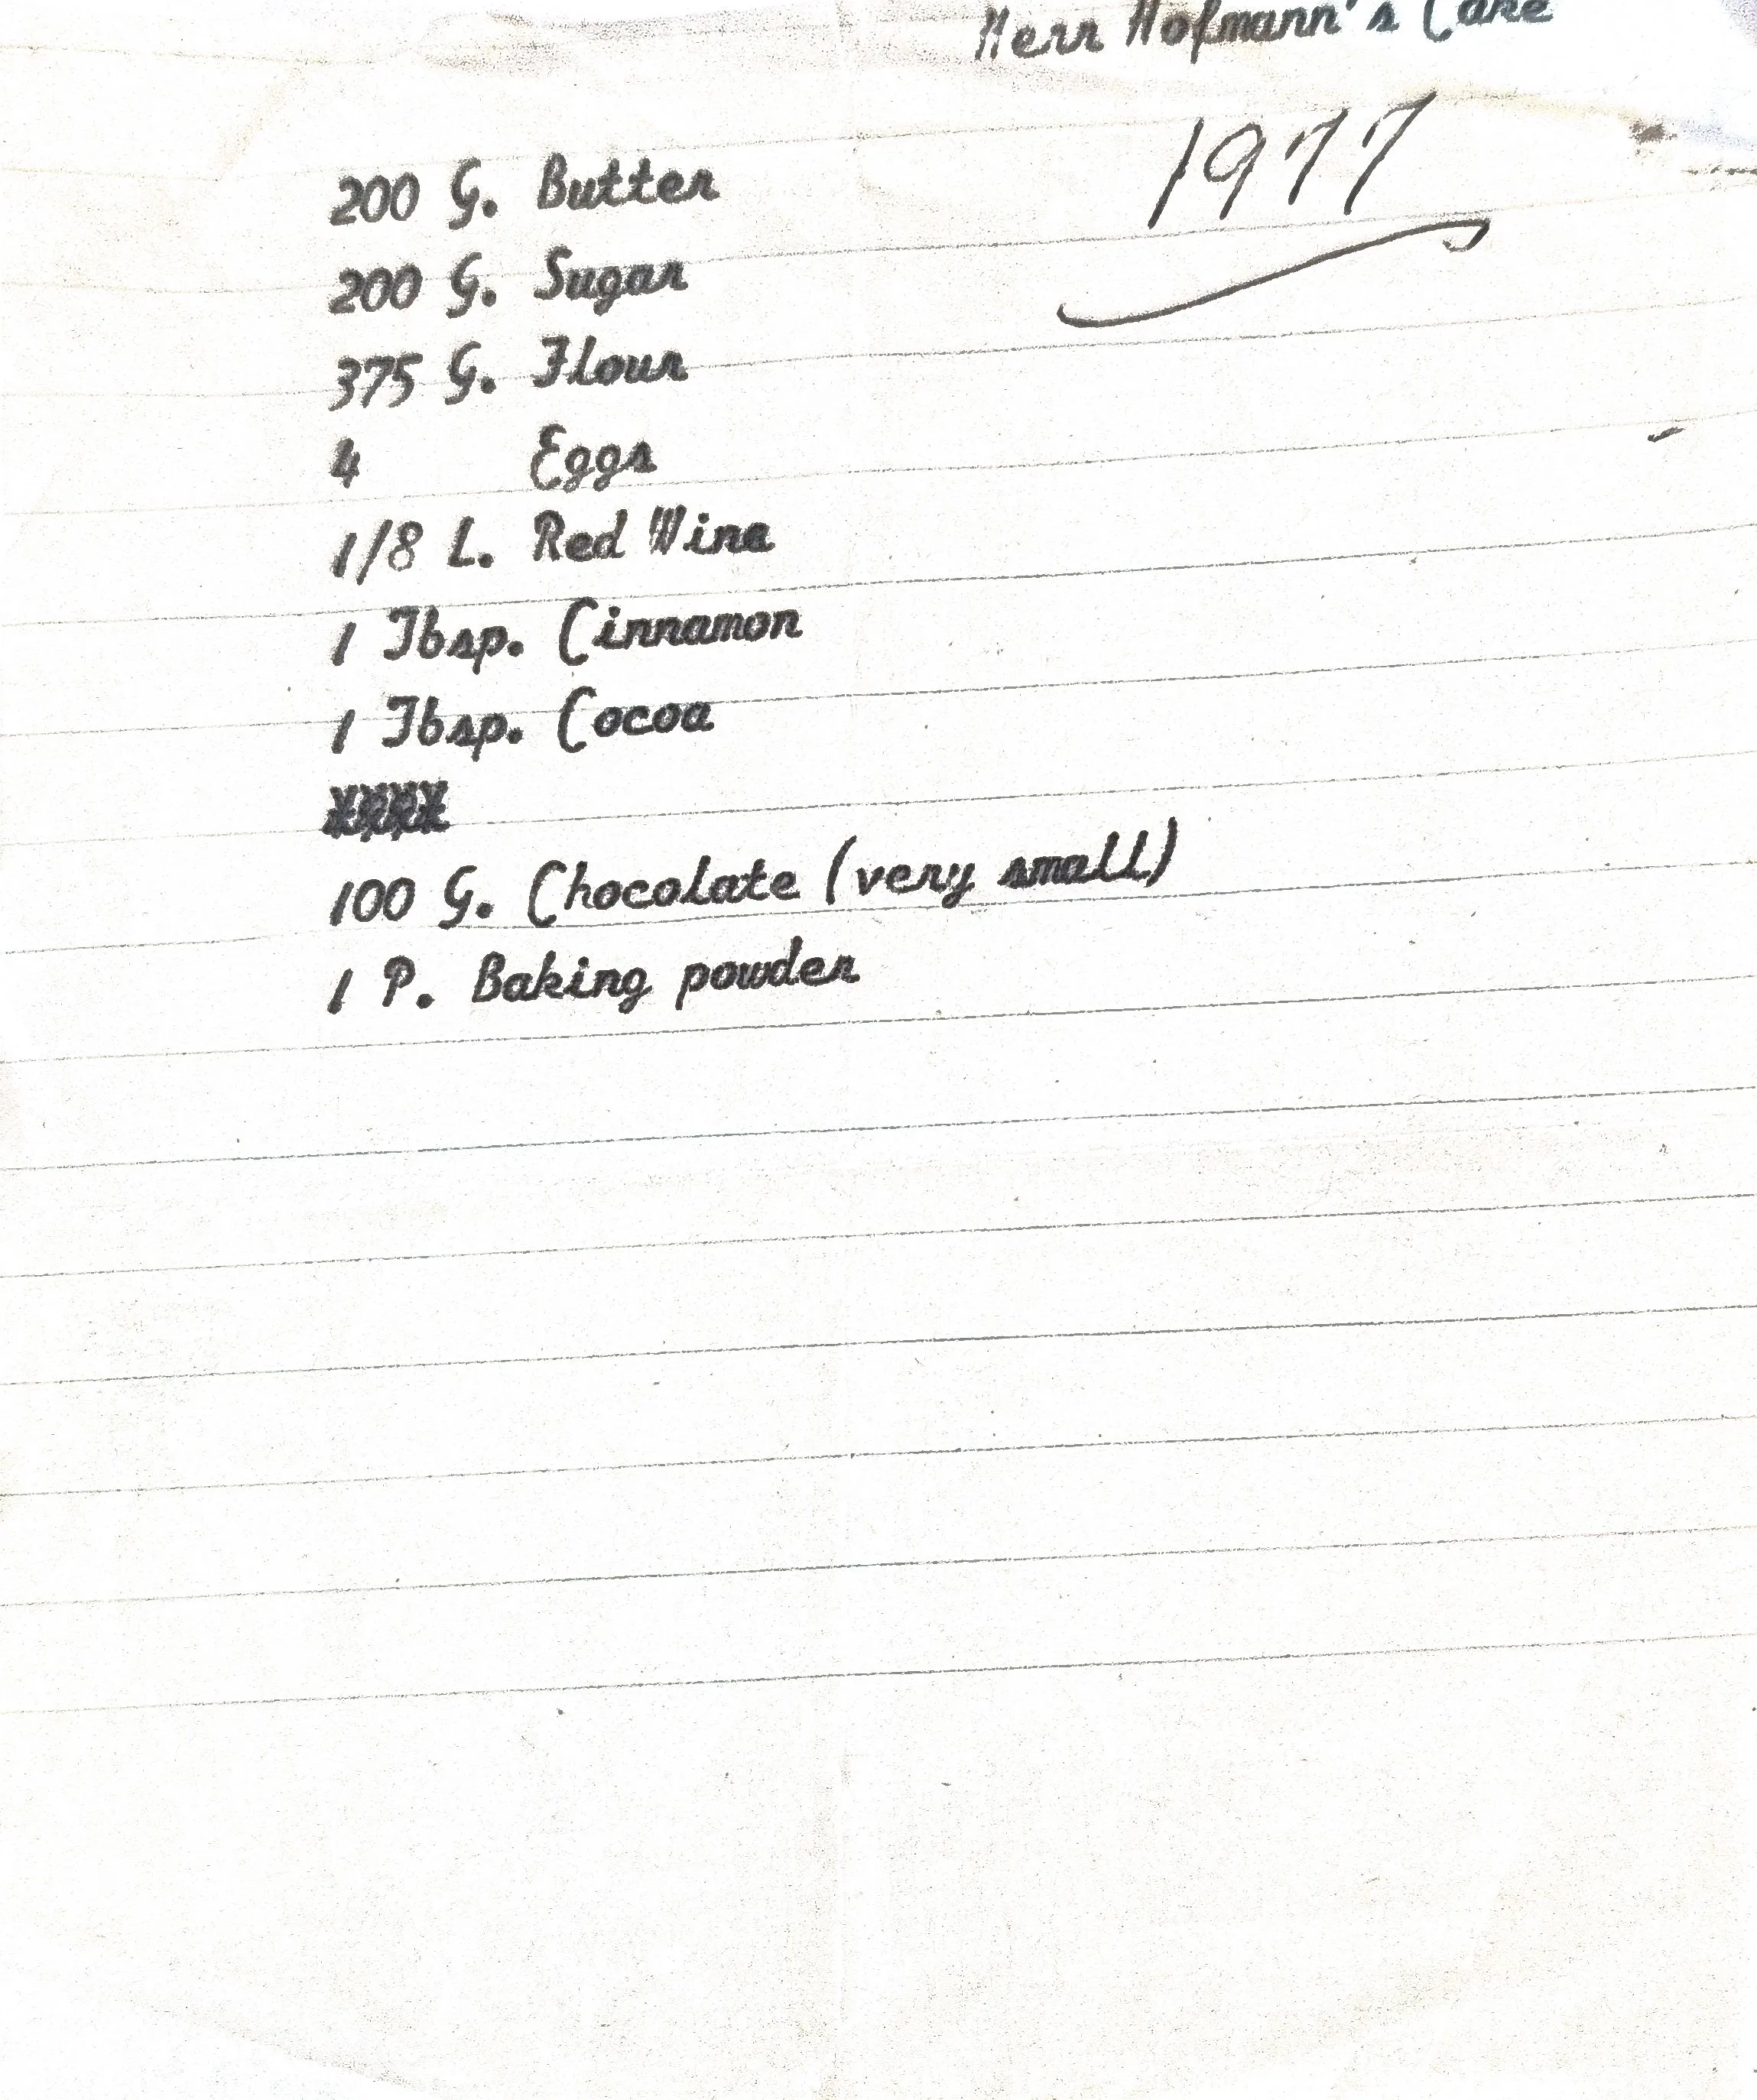 Herr Hofmann's Cake
1977
200 G. Butter
200 G. Sugar
375 G. Flour
4 Eggs
1/8 L. Red Wine
1 Tbsp. Cinnamon
1 Tbsp. Cocoa
100 G. Chocolate (very small)
1 P. Baking powder